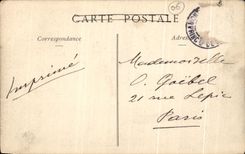 CARTE POSTALE
Correspondance
Adresse
Imprimé
Mademoiselle
O. Goëbel
21 rue Lepic
Paris